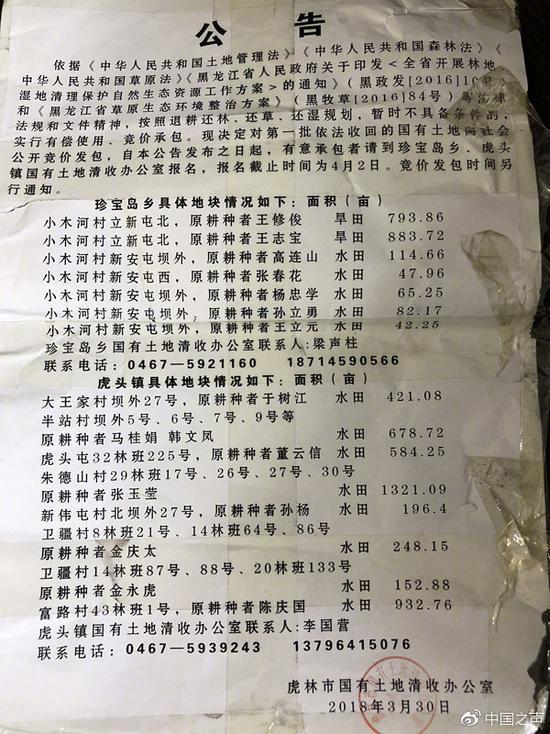 公告
依据《中华人民共和国土地管理法》《中华人民共和国森林法》《
中华人民共和国草原法》《黑龙江省人民政府关于印发<全省开展林地
湿地清理保护自然生态资源工作方案>的通知》(黑政发[2016]10号)
和《黑龙江省草原生态环境整治方案》(黑牧草[2016]84号)等法律
法规和文件精神，按照退耕还林、还草、还湿规划，暂时不具备条件的，
实行有偿使用、竞价承包。现决定对第一批依法收回的国有土地向社会
公开竞价发包，自本公告发布之日起，有意承包者请到珍宝岛乡、虎头
镇国有土地清收办公室报名，报名截止时间为4月2日。竞价发包时间另
行通知。
珍宝岛乡具体地块情况如下：面积（亩）
小木河村立新屯北，原耕种者王修俊 旱田 793.86
小木河村立新屯北，原耕种者王志宝 旱田 883.72
小木河村新安屯坝外，原耕种者高连山 水田 114.66
小木河村新安屯西，原耕种者张春花 水田 47.96
小木河村新安屯坝外，原耕种者杨忠学 水田 65.25
小木河村新安屯坝外，原耕种者孙立勇 水田 82.17
小木河村新安屯坝外，原耕种者王立元 水田 42.25
珍宝岛乡国有土地清收办公室联系人:梁声柱
联系电话：0467-5921160 18714590566
虎头镇具体地块情况如下：面积（亩）
大王家村坝外27号，原耕种者于树江 水田 421.08
半站村坝外5号、6号、7号、9号等
原耕种者马桂娟 韩文凤 水田 678.72
虎头屯32林班225号，原耕种者董云信 水田 584.25
朱德山村29林班17号、26号、27号、30号
原耕种者张玉莹 水田 1321.09
新伟屯村北坝外27号，原耕种者孙杨 水田 196.4
卫疆村8林班21号、14林班64号、86号
原耕种者金庆太 水田 248.15
卫疆村14林班87号、88号、20林班133号
原耕种者金永虎 水田 152.88
富路村43林班1号，原耕种者陈庆国 水田 932.76
虎头镇国有土地清收办公室联系人:李国营
联系电话：0467-5939243 13796415076
虎林市国有土地清收办公室
2018年3月30日
中国之声